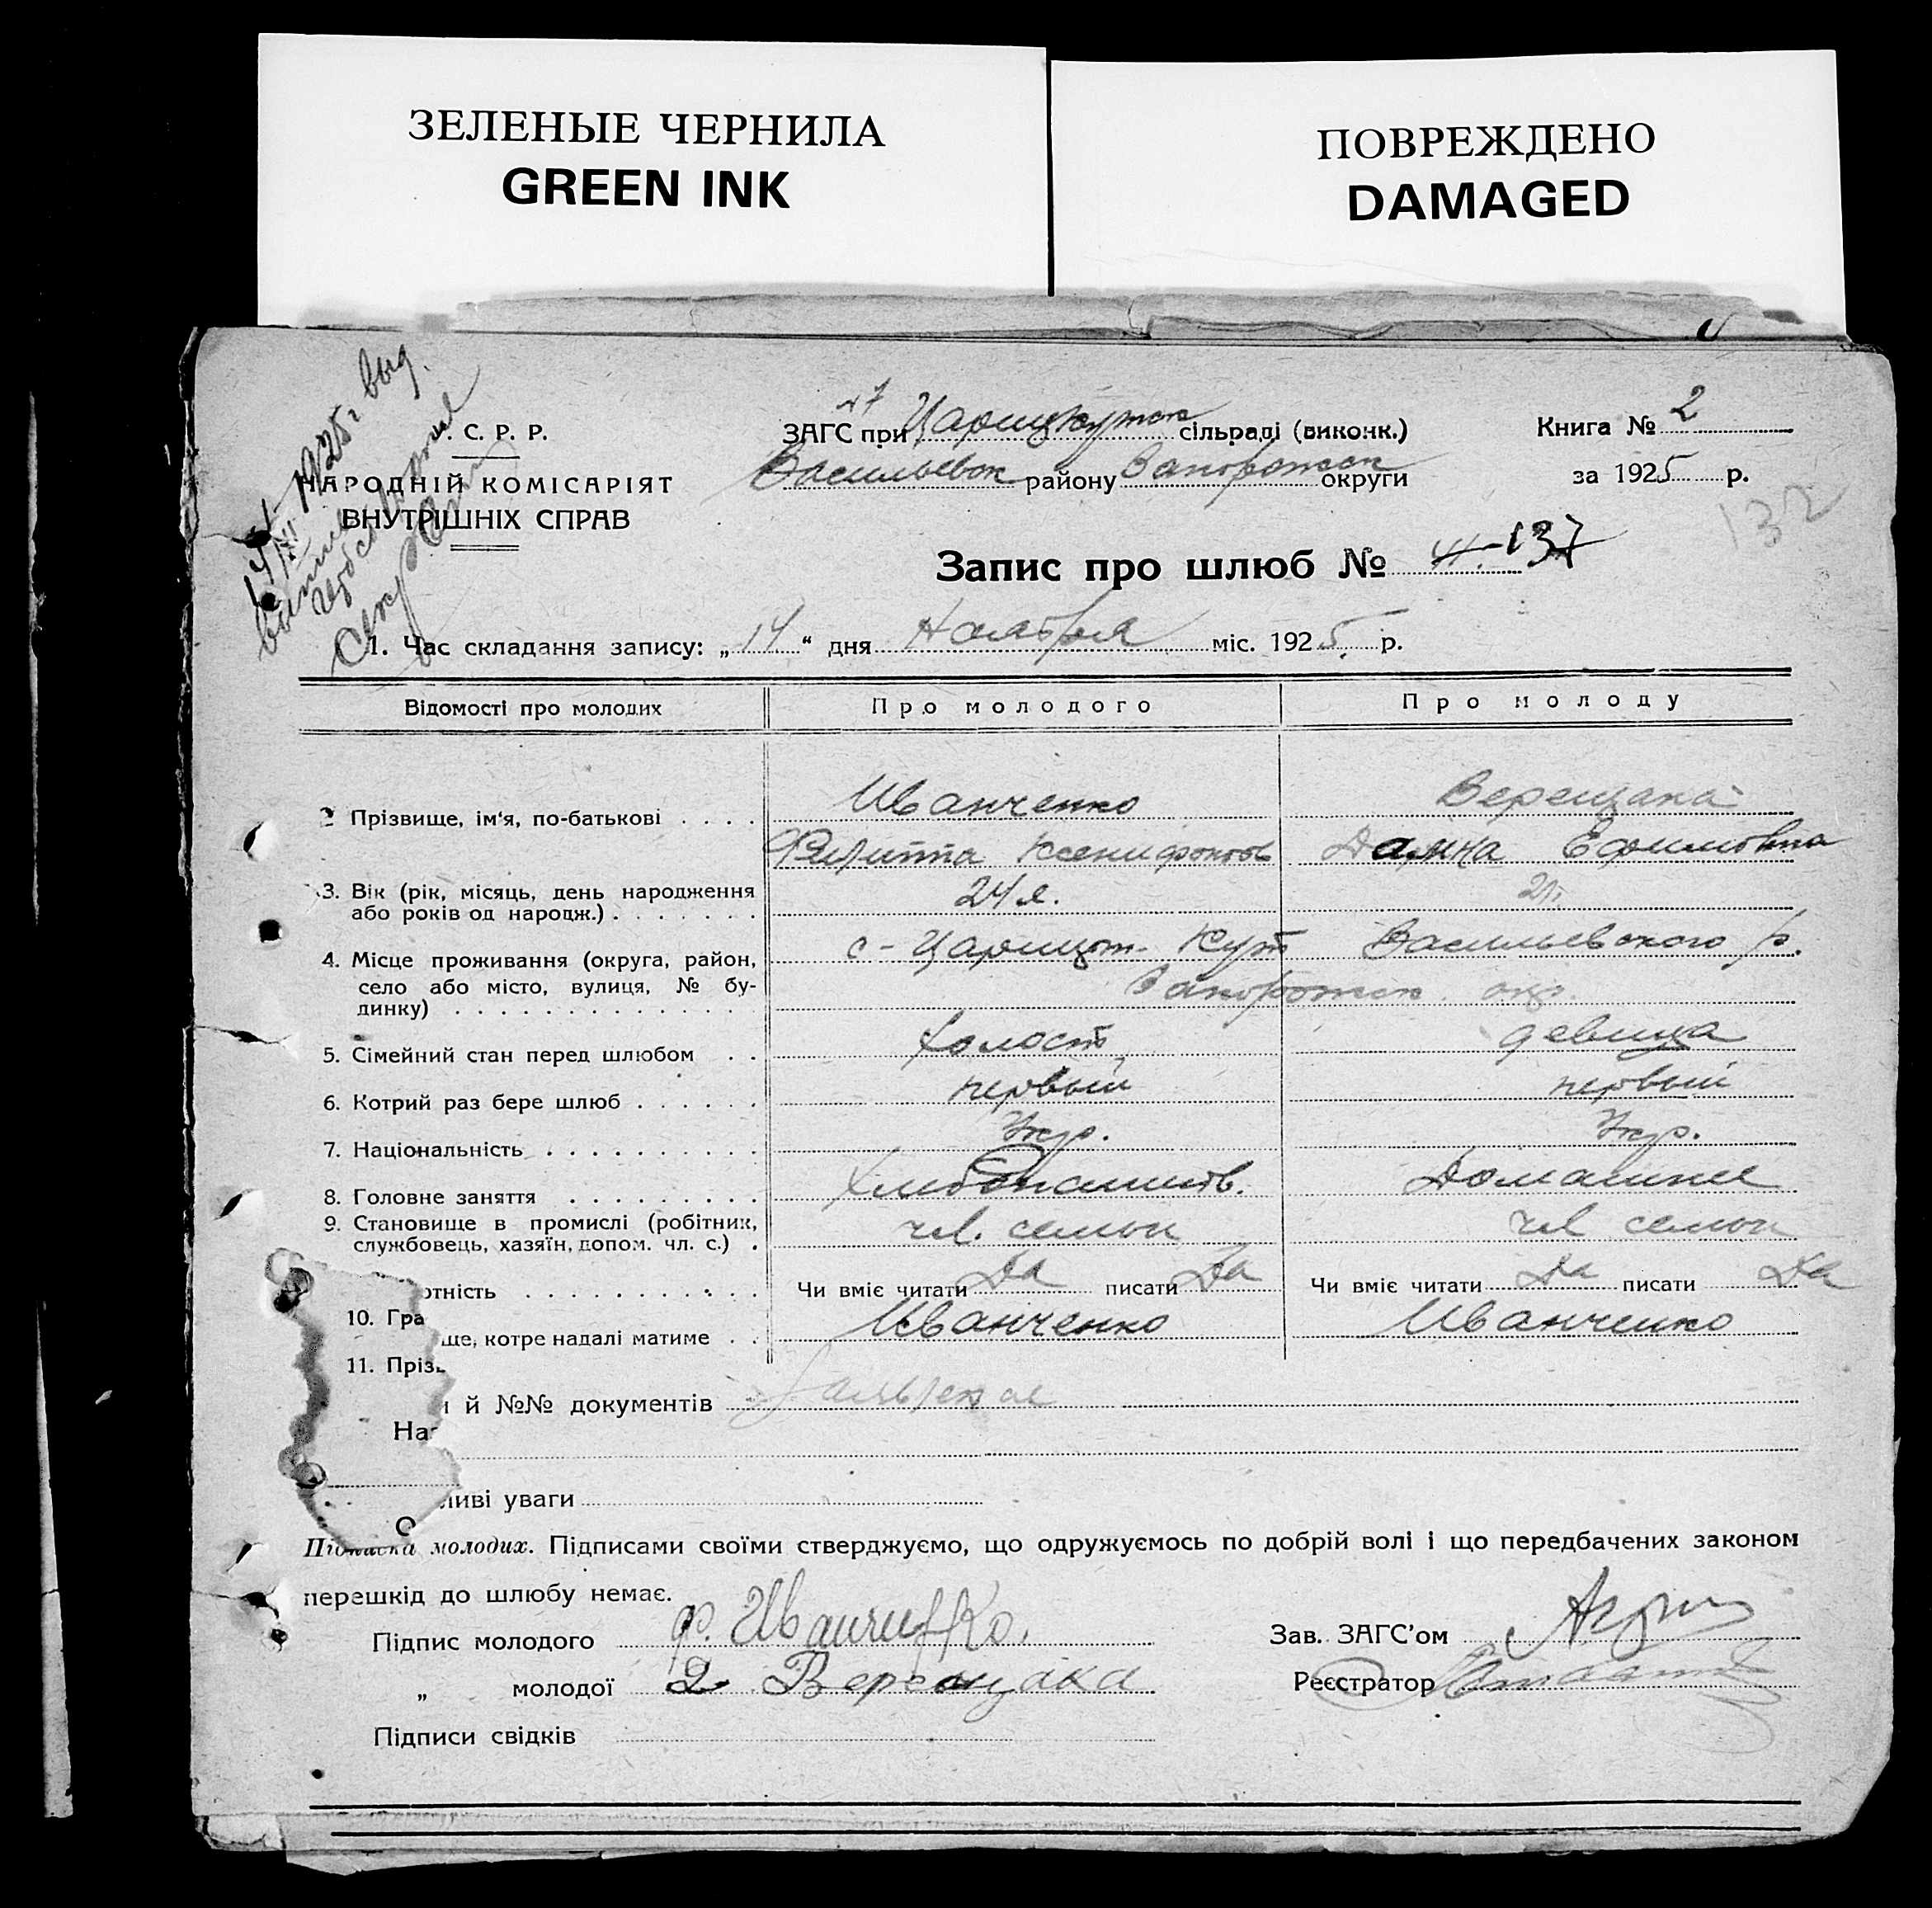 ЗЕЛЕНЫЕ ЧЕРНИЛА
GREEN INK
ПОВРЕЖДЕНО
DAMAGED
14/XI 1925 г. выд.
. С. Р. Р.
НАРОДНІЙ КОМІСАРІЯТ
ВНУТРІШНІХ СПРАВ
ЗАГС при Царицкутск сільраді (виконк.)
Васильевск району Запорожск округи
Книга № 2
за 1925 р.
132
Запис про шлюб № 137
1. Час складання запису: „14“ дня Ноября міс. 1925 р.
Відомості про молодих Про молодого Про молоду
2 Прізвище, ім'я, по-батькові Иванченко Верещака
Филиппа Ксенифонтов Ефимовна
3. Вік (рік, місяць, день народження або років од народж.) 24 л. 21
4. Місце проживання (округа, район, село або місто, вулиця, № будинку) с- Царицын- Кут Васильевского р.
Запорожск. окр.
5. Сімейний стан перед шлюбом Холост девица
6. Котрий раз бере шлюб первый первый
7. Національність Укр. Укр.
8. Головне заняття Домашние
9. Становище в промислі (робітник, службовець, хазяїн, допом. чл. с.) чл. семьи чл семьи
отність Чи вміє читати Да писати Да Чи вміє читати Да писати Да
10. Гра
ще, котре надалі матиме Иванченко Иванченко
11. Прізв
й №№ документів
Наз
ливі уваги
О
Підписка молодих. Підписами своїми стверджуємо, що одружуємось по добрій волі і що передбачених законом
перешкід до шлюбу немає.
Підпис молодого Ф. Иванченко.
Зав. ЗАГС'ом
„ молодої Д Верещака
Реєстратор
Підписи свідків